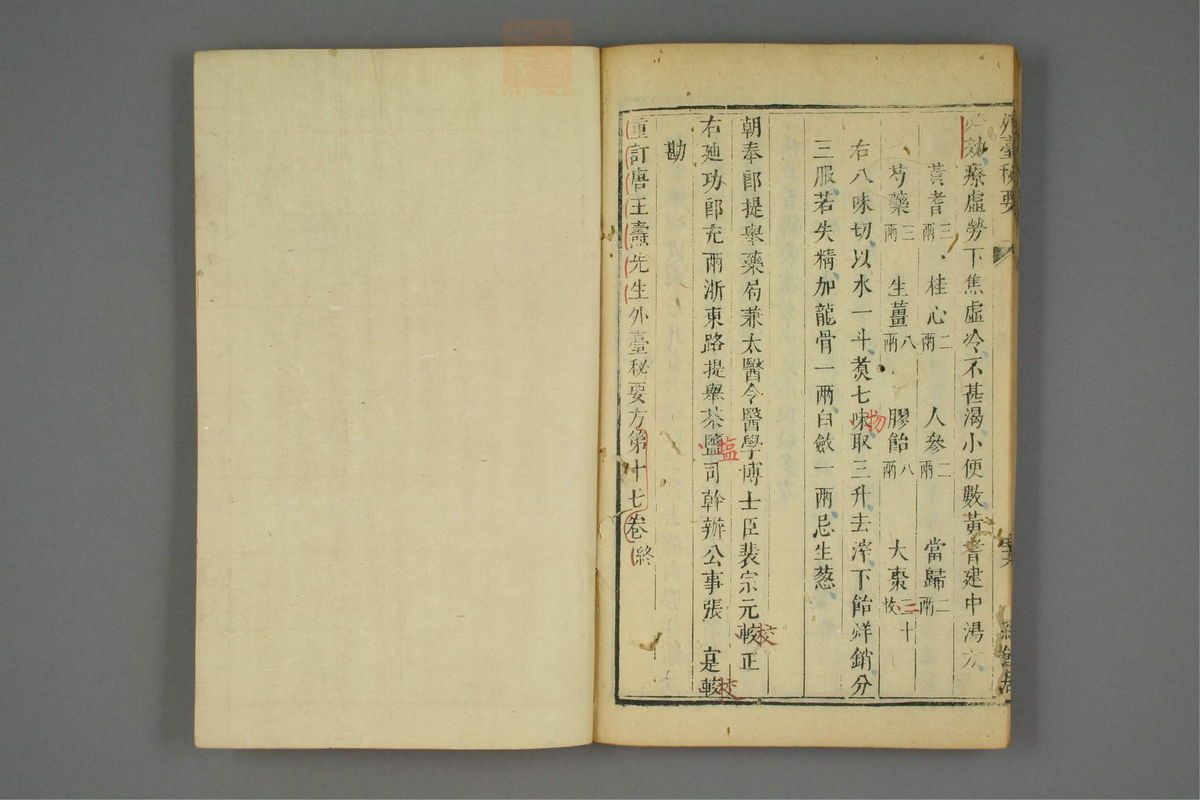 外臺秘要
必效療虛勞下焦虛冷不甚渴小便數黃耆建中湯方
黃耆三兩 桂心二兩 人參二兩 當歸二兩
芍藥三兩 生薑八兩 膠飴八兩 大棗三十枚
右八味切以水一斗煑七味取三升去滓下飴烊銷分
三服若失精加龍骨一兩白斂一兩忌生葱
物
朝奉郎提舉藥局兼太醫令醫學博士臣裴宗元較正
校
右廸功郎充兩浙東路提舉茶鹽司幹辦公事張 寔較
塩
校
勘
重訂唐王燾先生外臺秘要方第十七卷終